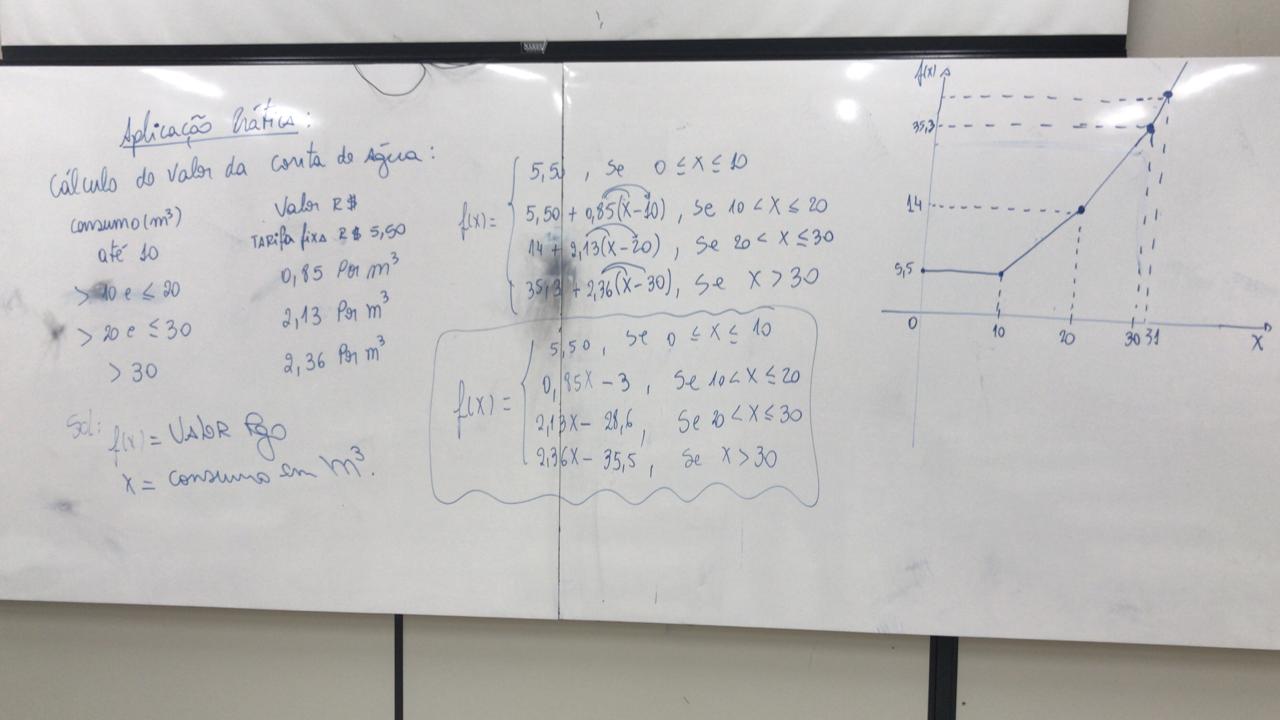 Aplicação Prática:
Cálculo do valor da conta de água:
consumo (m³) Valor R$
até 10 TARIFA fixa R$ 5,50
> 10 e ≤ 20 0,85 Por m³
> 20 e ≤ 30 2,13 Por m³
> 30 2,36 Por m³
Sol: f(x) = VALOR Pago
x = consumo em m³.
f(x) =
5,50 , se 0 ≤ x ≤ 10
5,50 + 0,85(x-10) , se 10 < x ≤ 20
14 + 2,13(x-20) , se 20 < x ≤ 30
35,3 + 2,36(x-30), se x > 30
f(x) =
5,50 , se 0 ≤ x ≤ 10
0,85x - 3 , se 10 < x ≤ 20
2,13x - 28,6 , se 20 < x ≤ 30
2,36x - 35,5 , se x > 30
f(x)
35,3
14
5,5
0 10 20 30 31 x